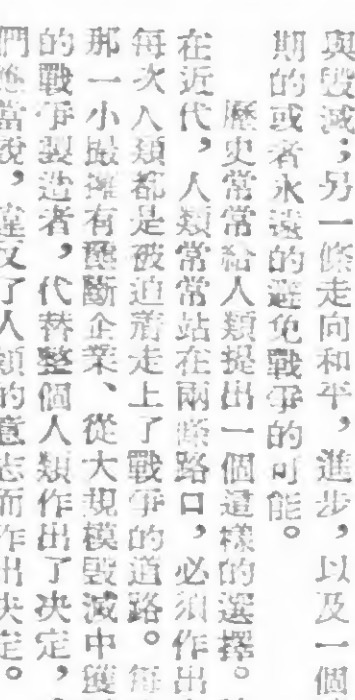 與毀滅；另一條走向和平，進步，以及一個
期的或者永遠的避免戰爭的可能。
歷史常常給人類提出一個這樣的選擇。
在近代，人類常常站在兩條路口，必須作出
每次人類都是被迫着走上了戰爭的道路。每
那一小撮擁有壟斷企業、從大規模毀滅中獲
的戰爭製造者，代替整個人類作出了决定，
們應當說，違反了人類的意志而作出决定。